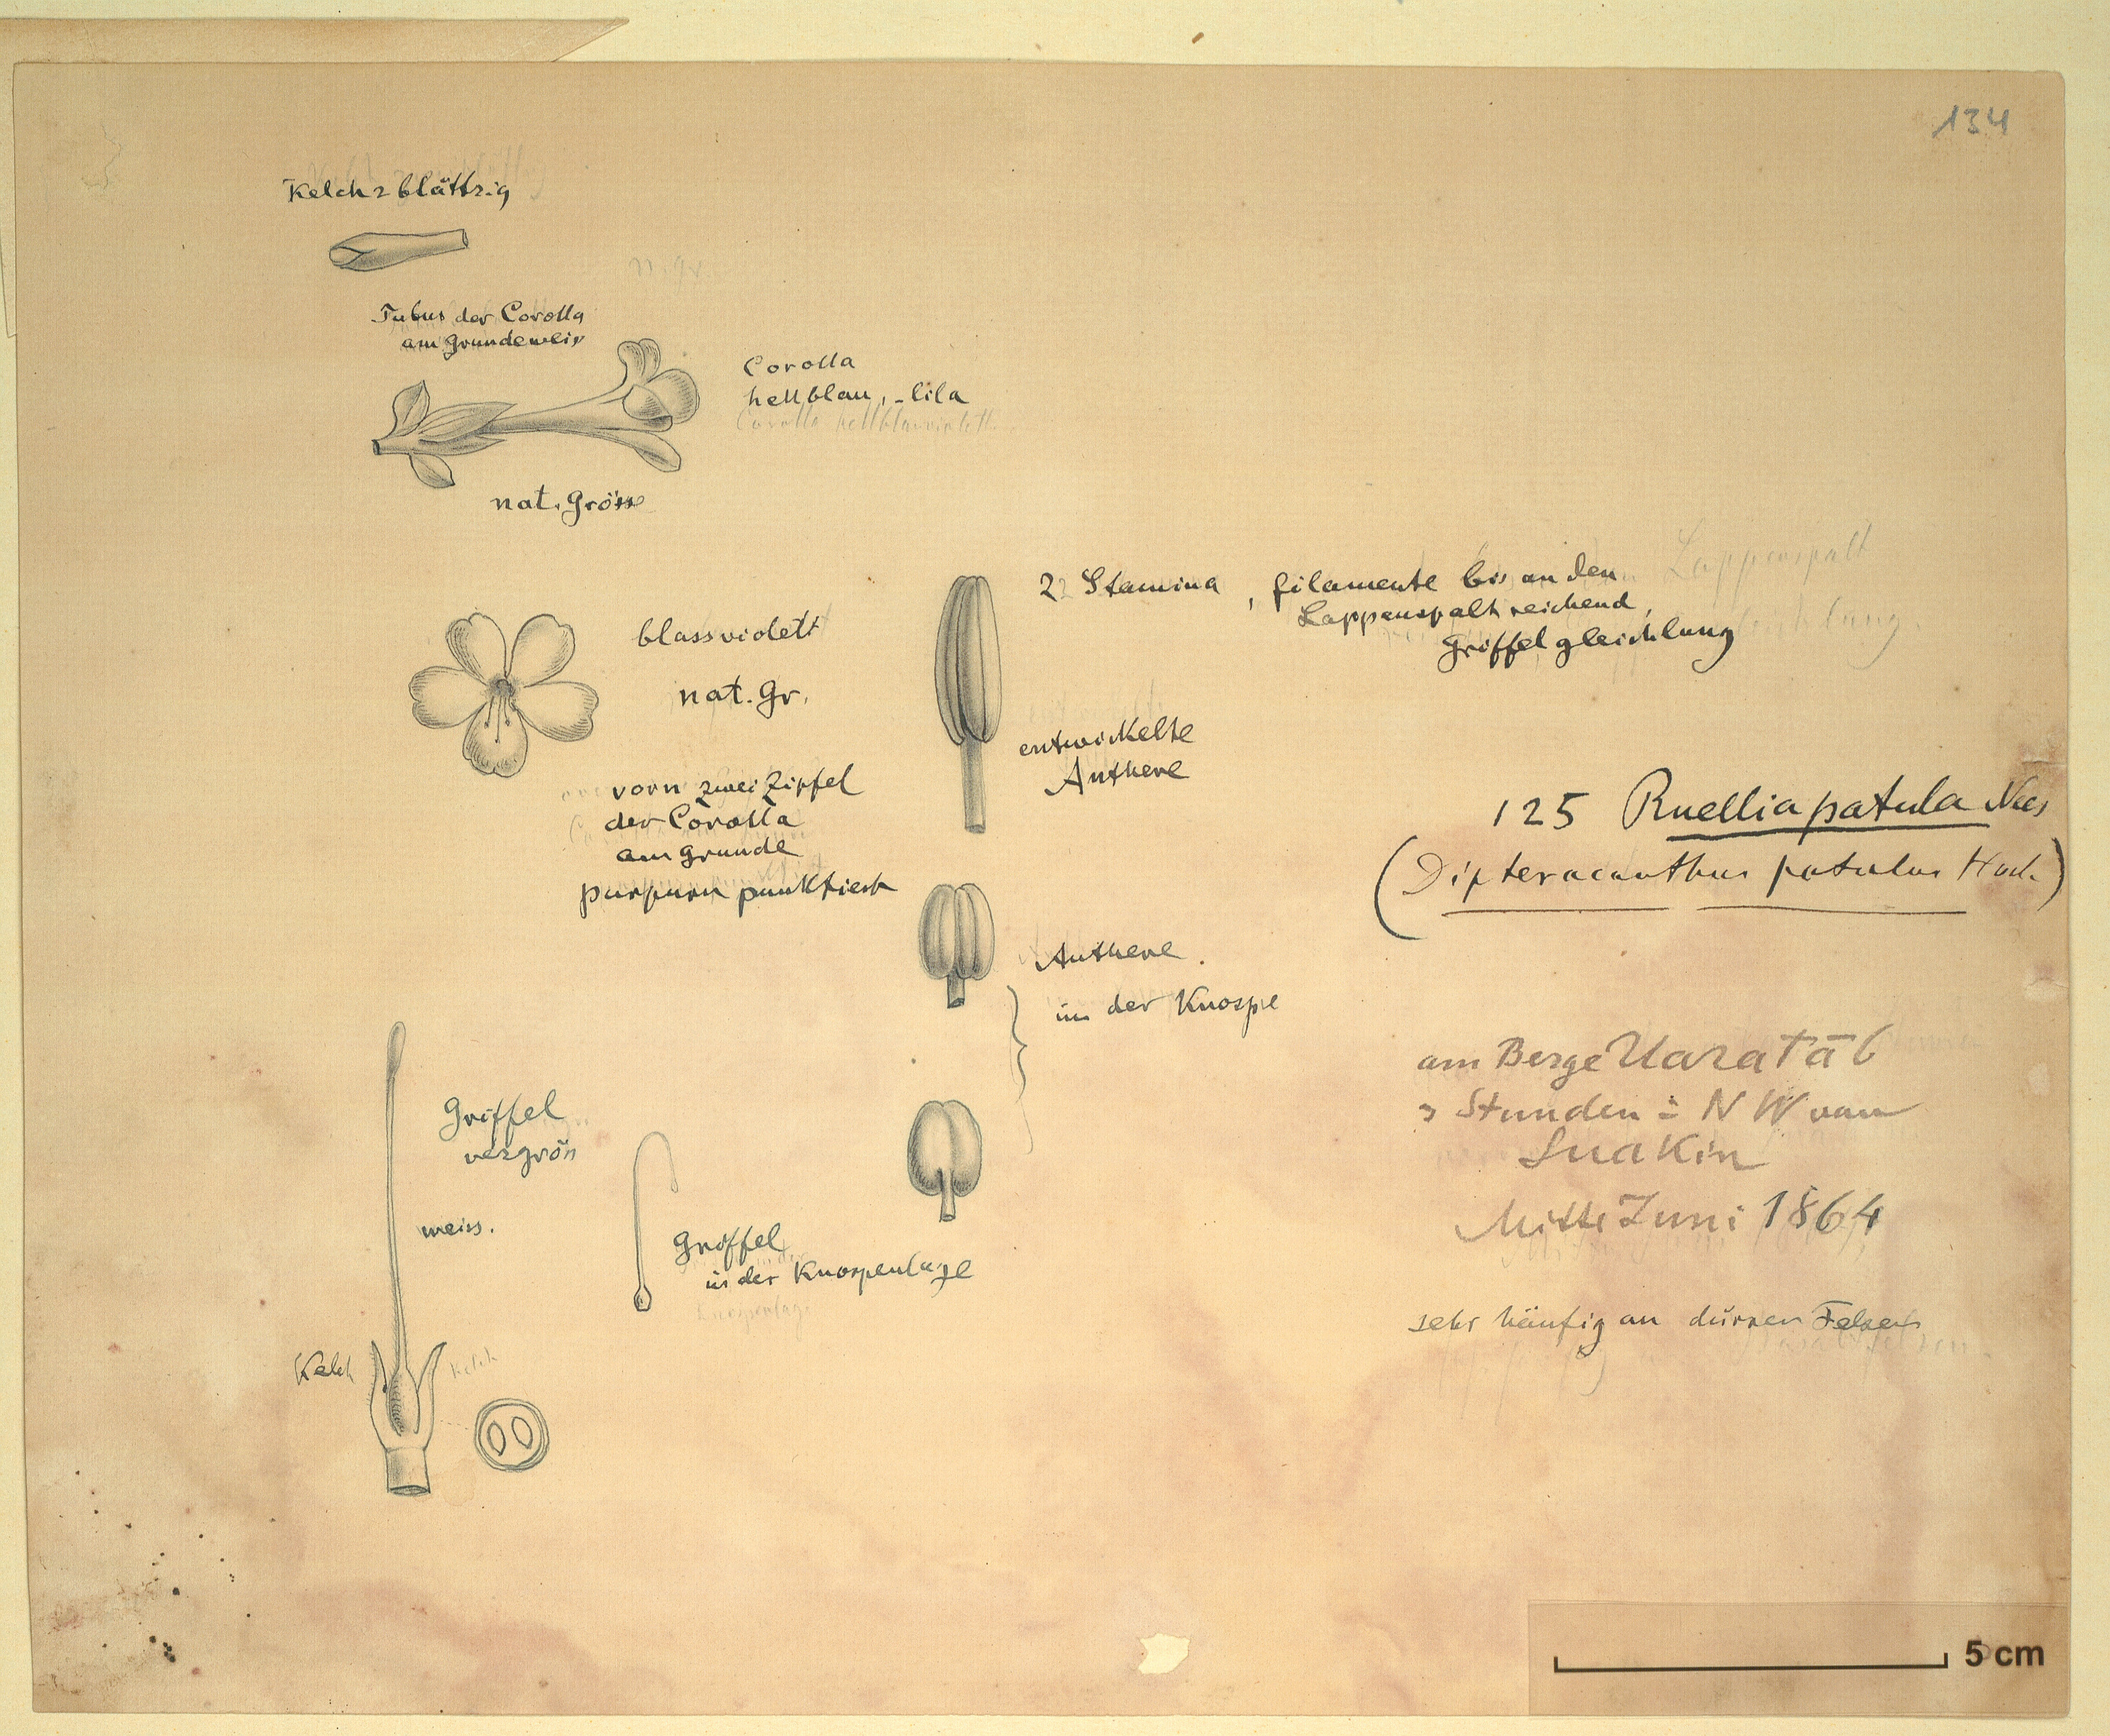 134
Kelch 2 blättrig
Tubus der Corolla
am Grunde weis
Corolla
hellblau, -lila
Corolla hellblauviolett
nat. Grösse
2 Stamina, filamente bis an den
Lappenspalt reichend,
Griffel gleichlang
Lappenspalt
blassviolett
nat. Gr.
entwickelte
Anthere
vorn zwei Zipfel
der Corolla
am Grunde
purpurn punktiert
125 Ruellia patula Nees
(Dipteracanthus patulus Hoch.)
Anthere.
in der Knospe
am Berge Uaratāb
Stunden in NW von
Suakin
Mitte Juni 1864
Griffel
vergrös
weiss.
Griffel
in der Knospenlage
Knospenlage
sehr häufig an dürren Felsen
Kelch
Kelch
5 cm